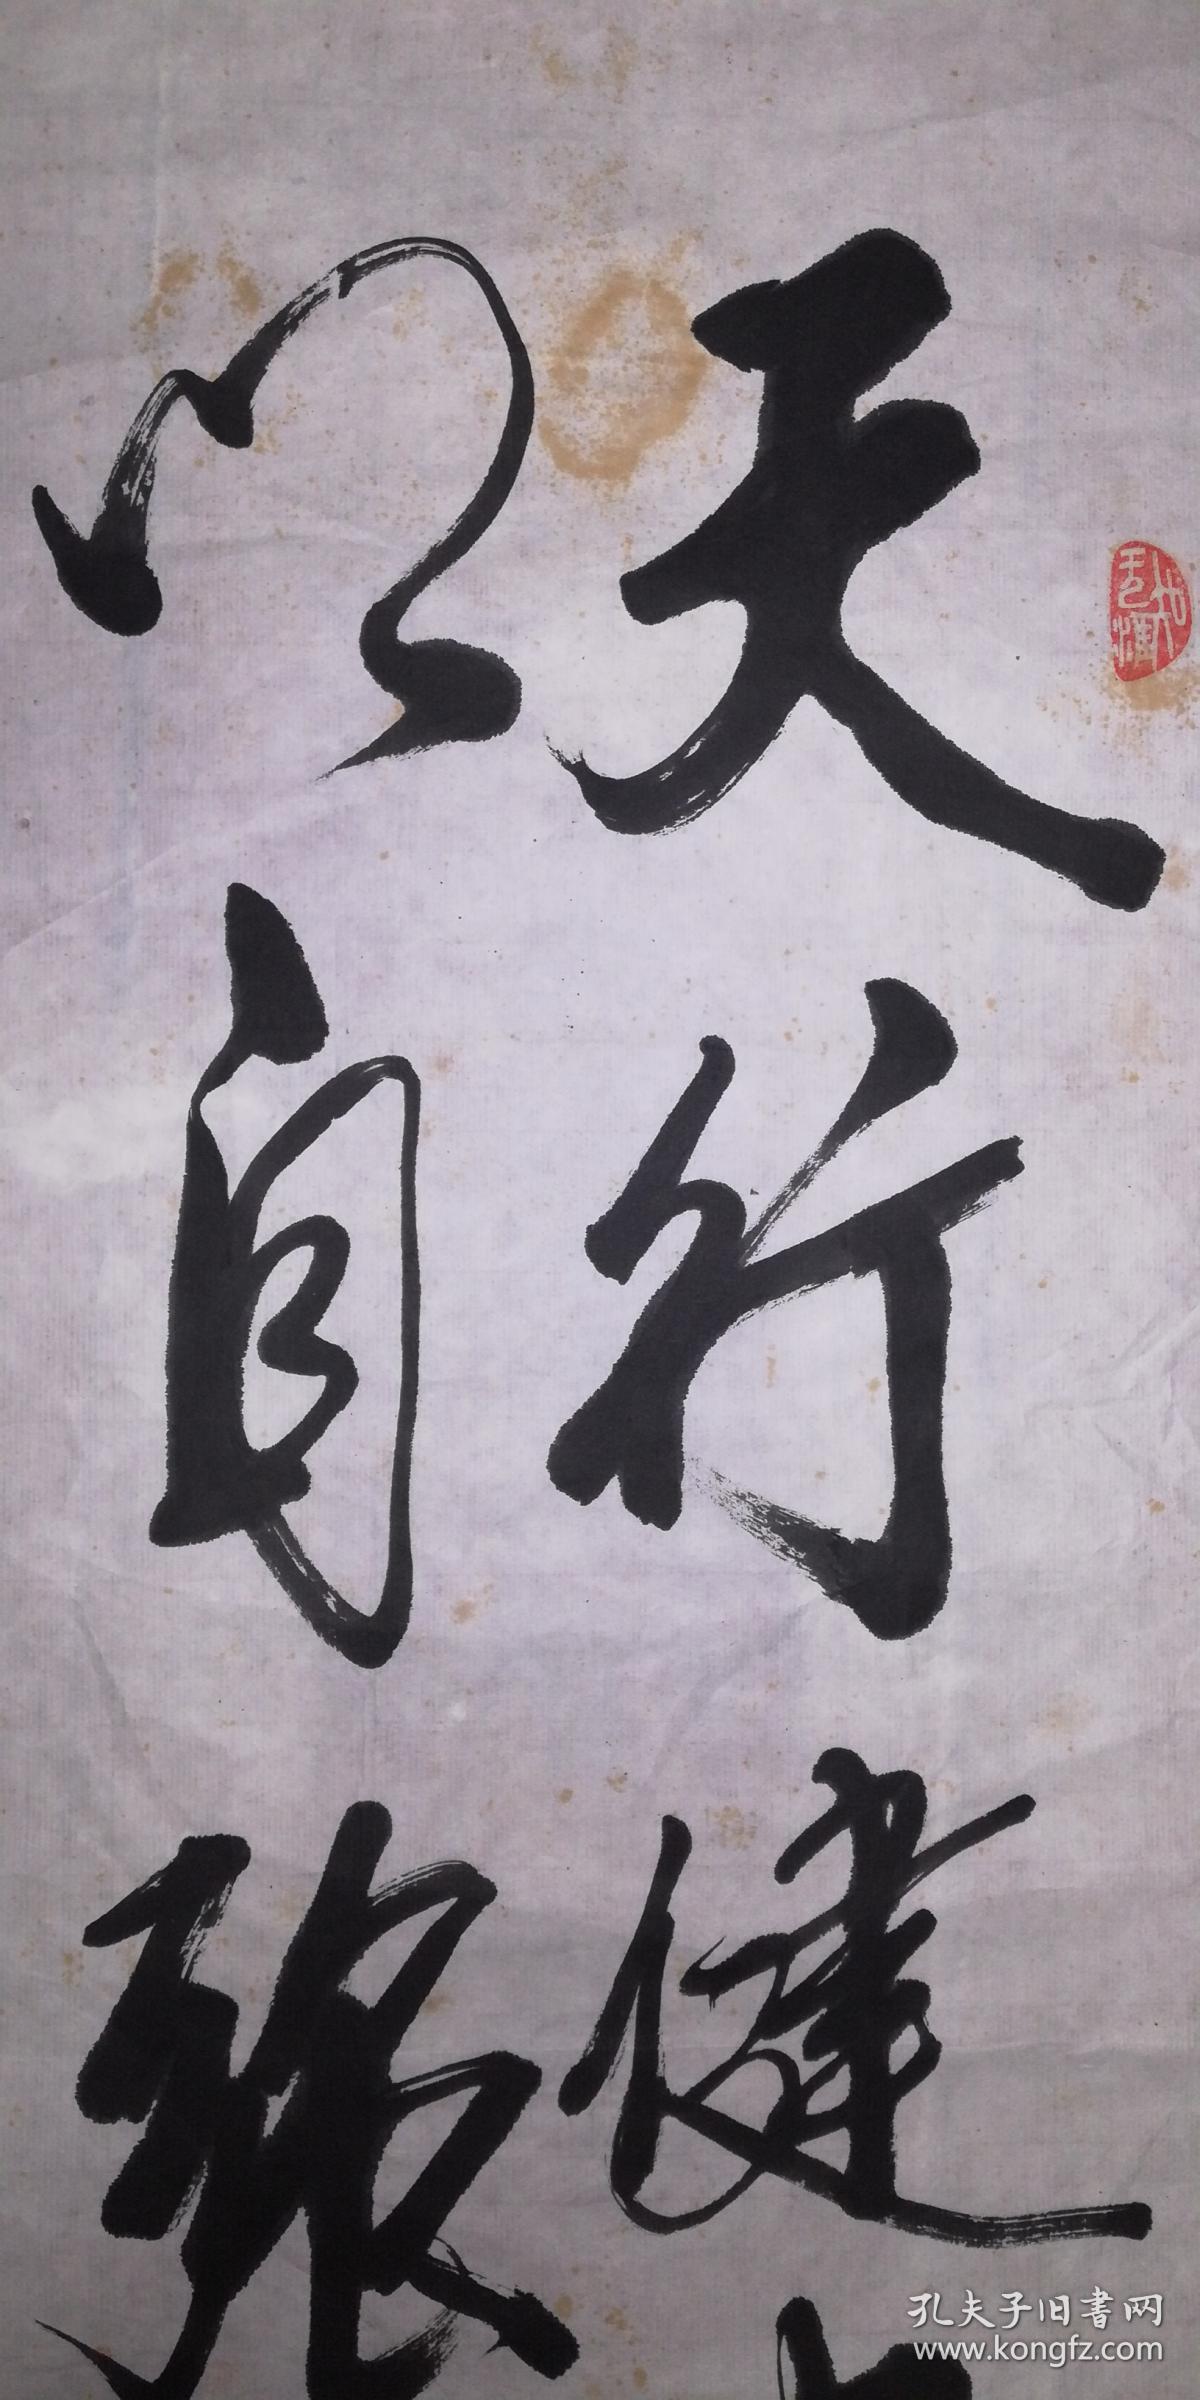 天行健
以自強
孔夫子旧書网
www.kongfz.com